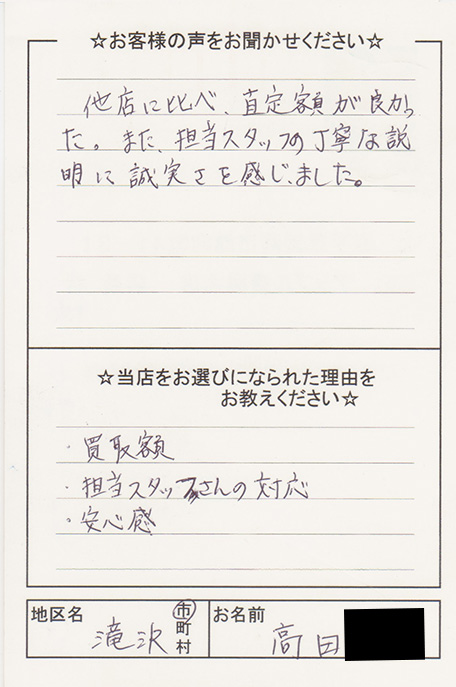 ☆お客様の声をお聞かせください☆
他店に比べ、直定額が良かっ
た。また、担当スタッフの丁寧な説
明に誠実さを感じました。
☆当店をお選びになられた理由を
お教えください☆
・買取額
・担当スタッフさんの対応
・安心感
地区名 滝沢 市町村 お名前 高田